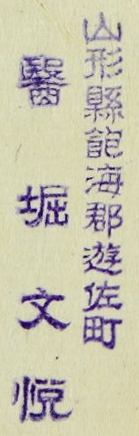 山形縣飽海郡遊佐町
醫堀文悦